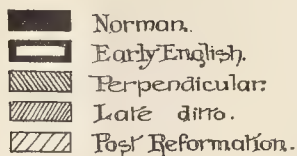 Norman.
Early English.
Perpendicular.
Late ditto.
Post Reformation.